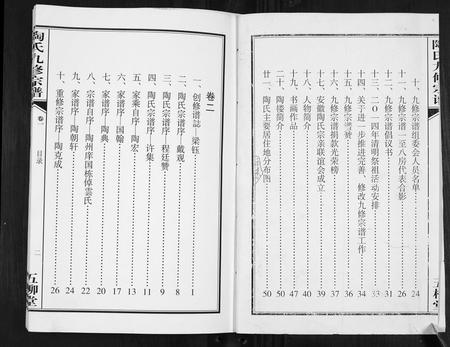 陶氏九修宗谱
十、九修宗谱组委会人员名单 24
十一、九修宗谱一至八房代表合影 26
十二、九修宗谱倡议书 31
十三、二〇一四年清明祭祖活动安排 33
十四、关于进一步推进完善、修改九修宗谱工作 34
十五、九修宗谱赞 36
十六、九修宗谱捐款光荣榜 37
十七、安徽陶氏宗亲联谊会成立 39
十八、人物简介 40
十九、书画作品 47
二十、陶楼简介 50
廿一、陶氏主要居住地分布图 50
五柳堂
陶氏九修宗谱
卷一
目录
二
五柳堂
卷二
一、创修谱跋—梁钰 1
二、陶氏宗谱序—戴观 8
三、陶氏宗谱序—程廷赞 9
四、陶氏宗谱序—许集 11
五、家乘自序—陶宏 13
六、家谱序—国翰 17
七、家谱序—陶典 20
八、宗谱自序—陶州庠国栋倬雲氏 22
九、家谱序—陶朝轩 24
十、重修宗谱序—陶克成 26